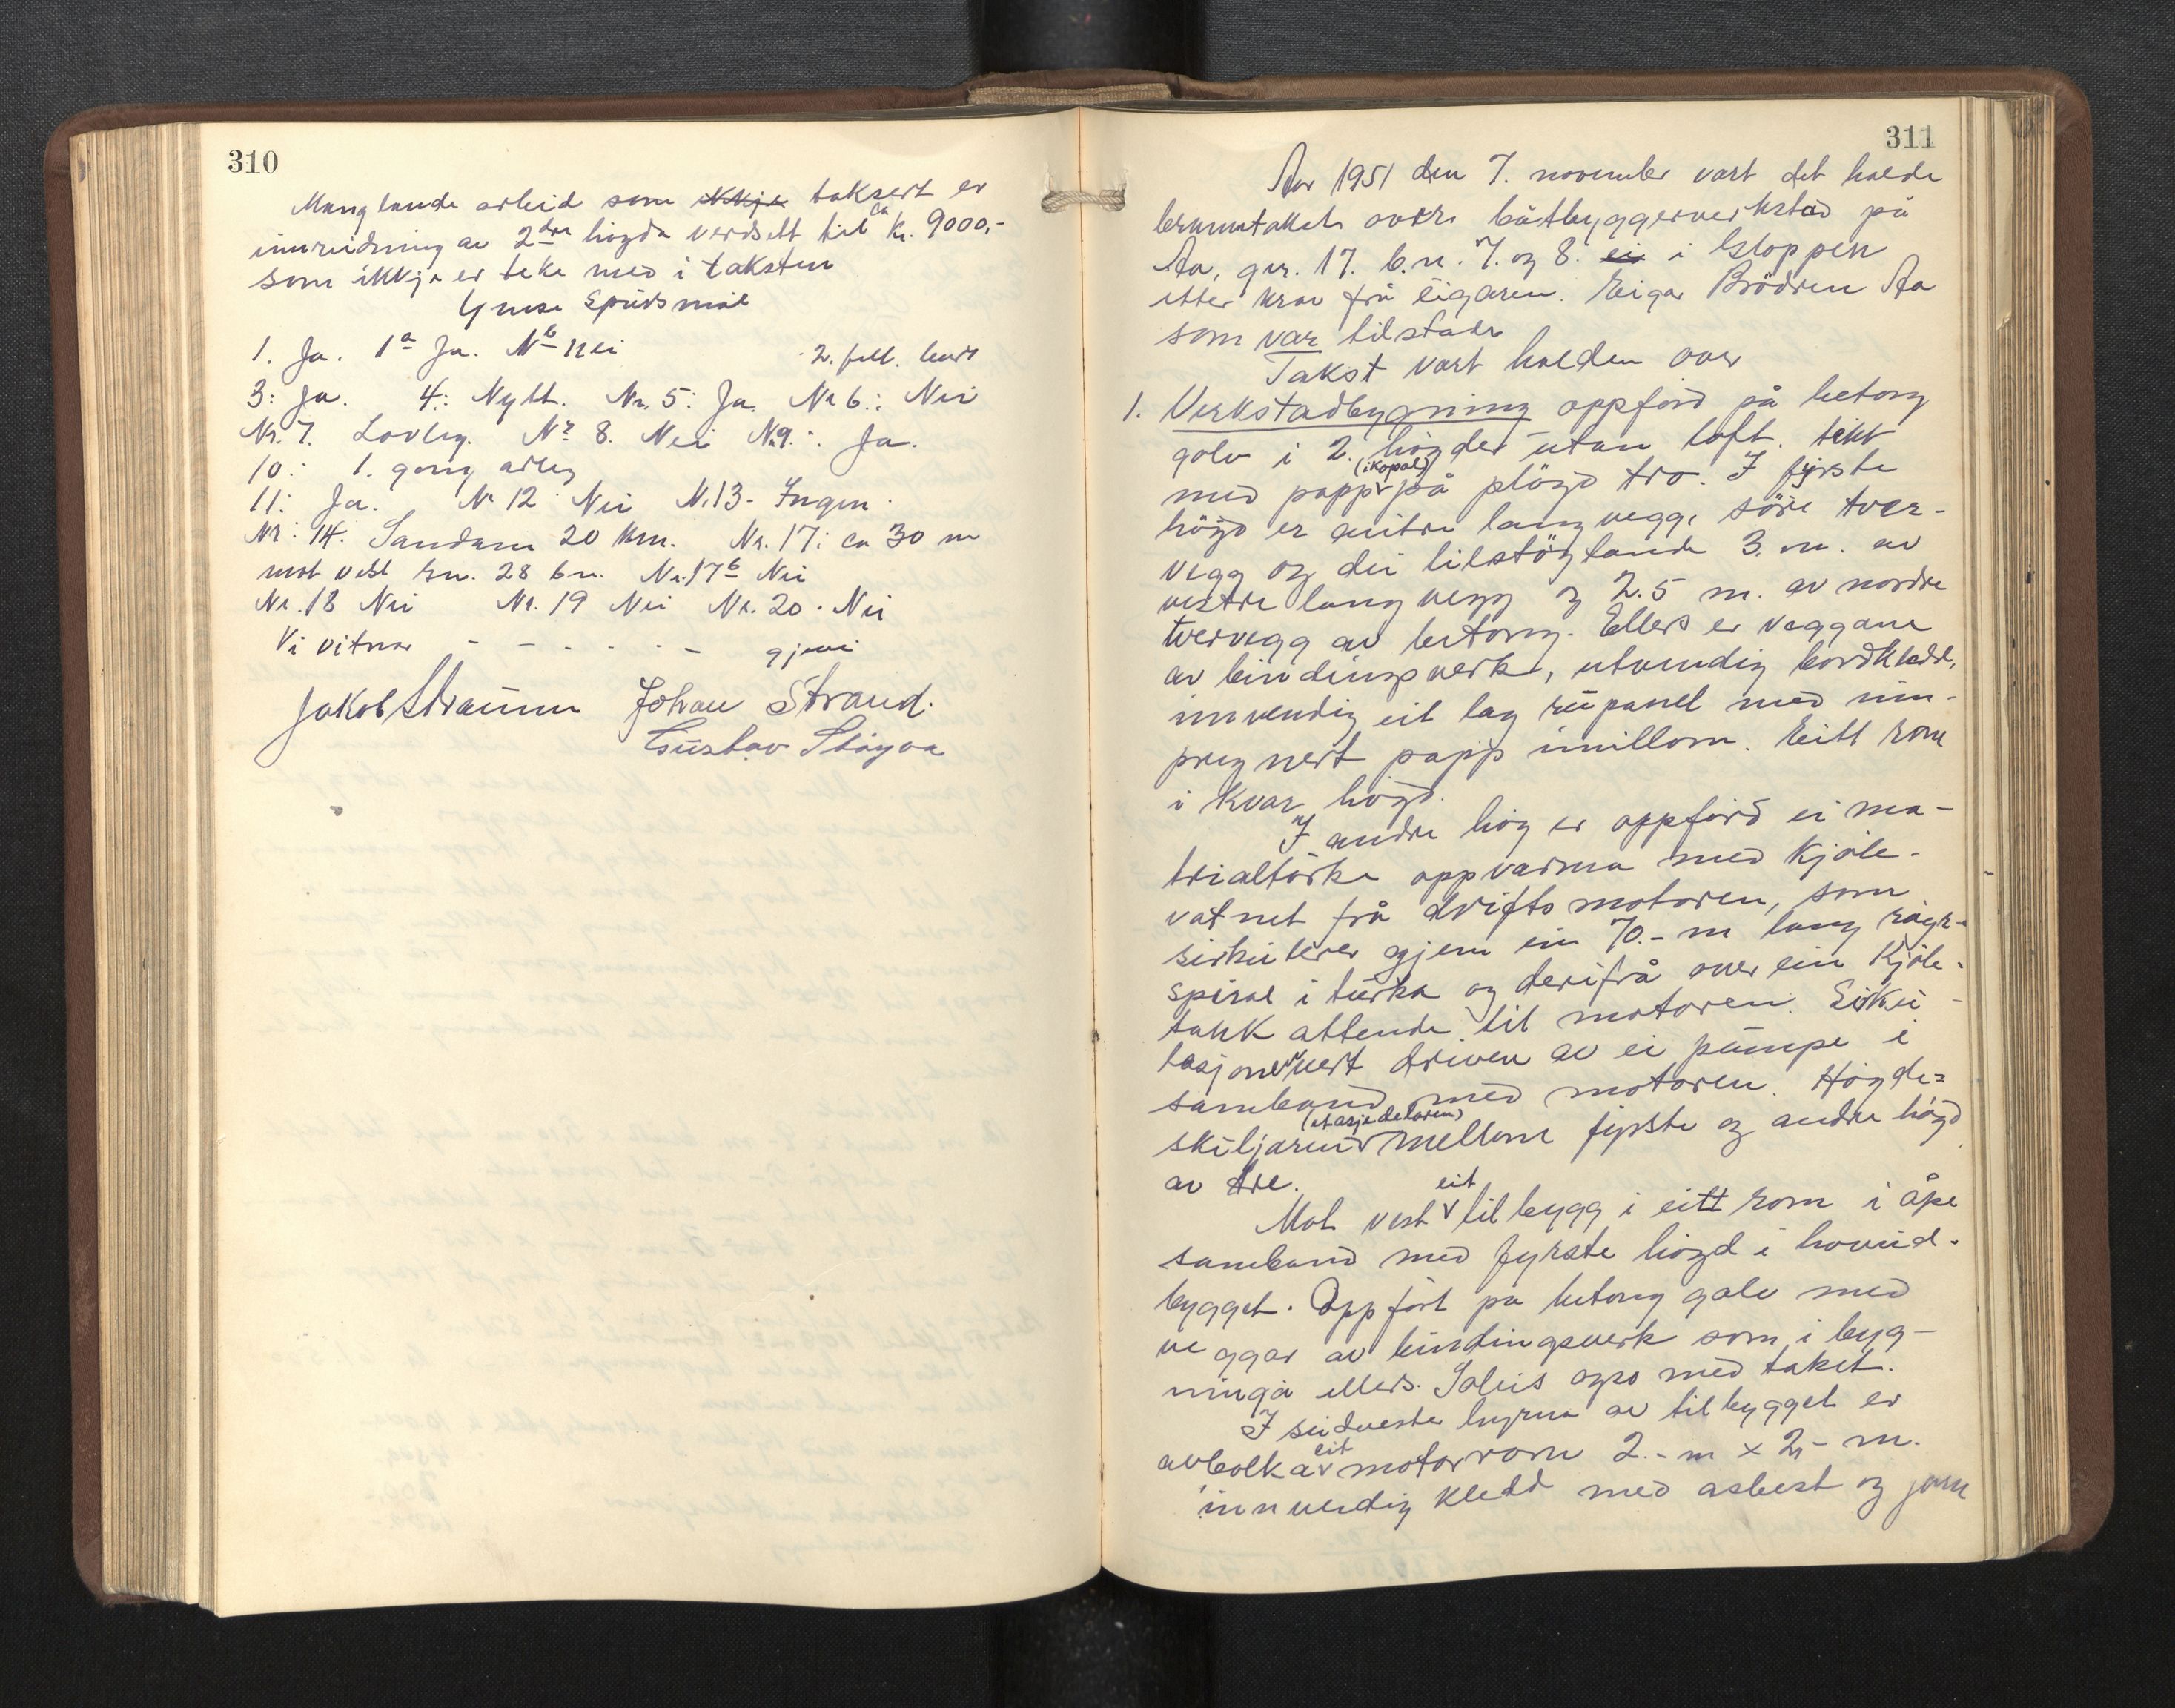 310
Manglande arbeid som ikkje taksert er
innreidning av 2dre högda verdsett til ca kr. 9000,-
som ikkje er teke med i taksten
Ymse spursmål
1. Ja. 1a Ja. Nb nei 2. full. bord
3: Ja. 4: Nytt. Nr. 5: Ja. Nr 6: Nei
Nr. 7. Lovleg. Nr 8. Nei Nr. 9: Ja.
10: 1. gong årleg
11: Ja. Nr 12 Nei Nr. 13- Ingen.
Nr: 14. Sandane 20 km. Nr. 17: ca 30 m
mot vest gn. 28 bn. Nr. 17b Nei
Nr. 18 Nei Nr. 19 Nei Nr. 20. Nei
Vi vitnar - - - - - - gjevi
Jakob Straume Johan Strand.
Gustav Støyva
311
Aar 1951 den 7. november vart det halde
branntakst over båtbyggerverkstad på
Aa, gnr. 17. b.n. 7. og 8. ei i Gloppen
etter krav frå eigaren. Eigar Brödrene Aa
som var tilstade
Takst vart halden over
1. Verkstadbygning oppförd på betong
golv i 2. högder utan loft. tekt
med papp (ikopal) på plögd tro. I fyrste
högd er austre langvegg, söre tver-
vegg og dei tilstöytande 3. m. av
vestre langvegg og 2.5 m. av nordre
tvervegg av betong. Ellers er veggane
av bindingsverk, utvendig bordkledd,
innvendig eit lag rupanel med im-
pregnert papp imillom. Eitt rom
i kvar högd.
I andre hög er oppförd ei ma-
trialtörke oppvarma med kjöle-
vatnet frå driftsmotoren, som
sirkulerer gjem ein 70.- m lang röyr-
spiral i turka og derifrå over ein kjöle-
tank attende til motoren. Sirku-
lasjonen vert driven av ei pumpe i
samband med motoren. Högde-
skiljaren (etasjedelaren) mellom fyrste og andre högd
av tre.
Mot vest eit tilbygg i eitt rom i åpe
samband med fyrste högd i hovud-
bygget. Oppfört på betong golv med
veggar av bindingsverk som i byg-
ninga ellers. Soleis ogso med taket.
I sudvestre hyrna av tilbygget er
avbolka eit motorrom 2.- m x 2,- m.
innvendig kledd med asbest og jarn